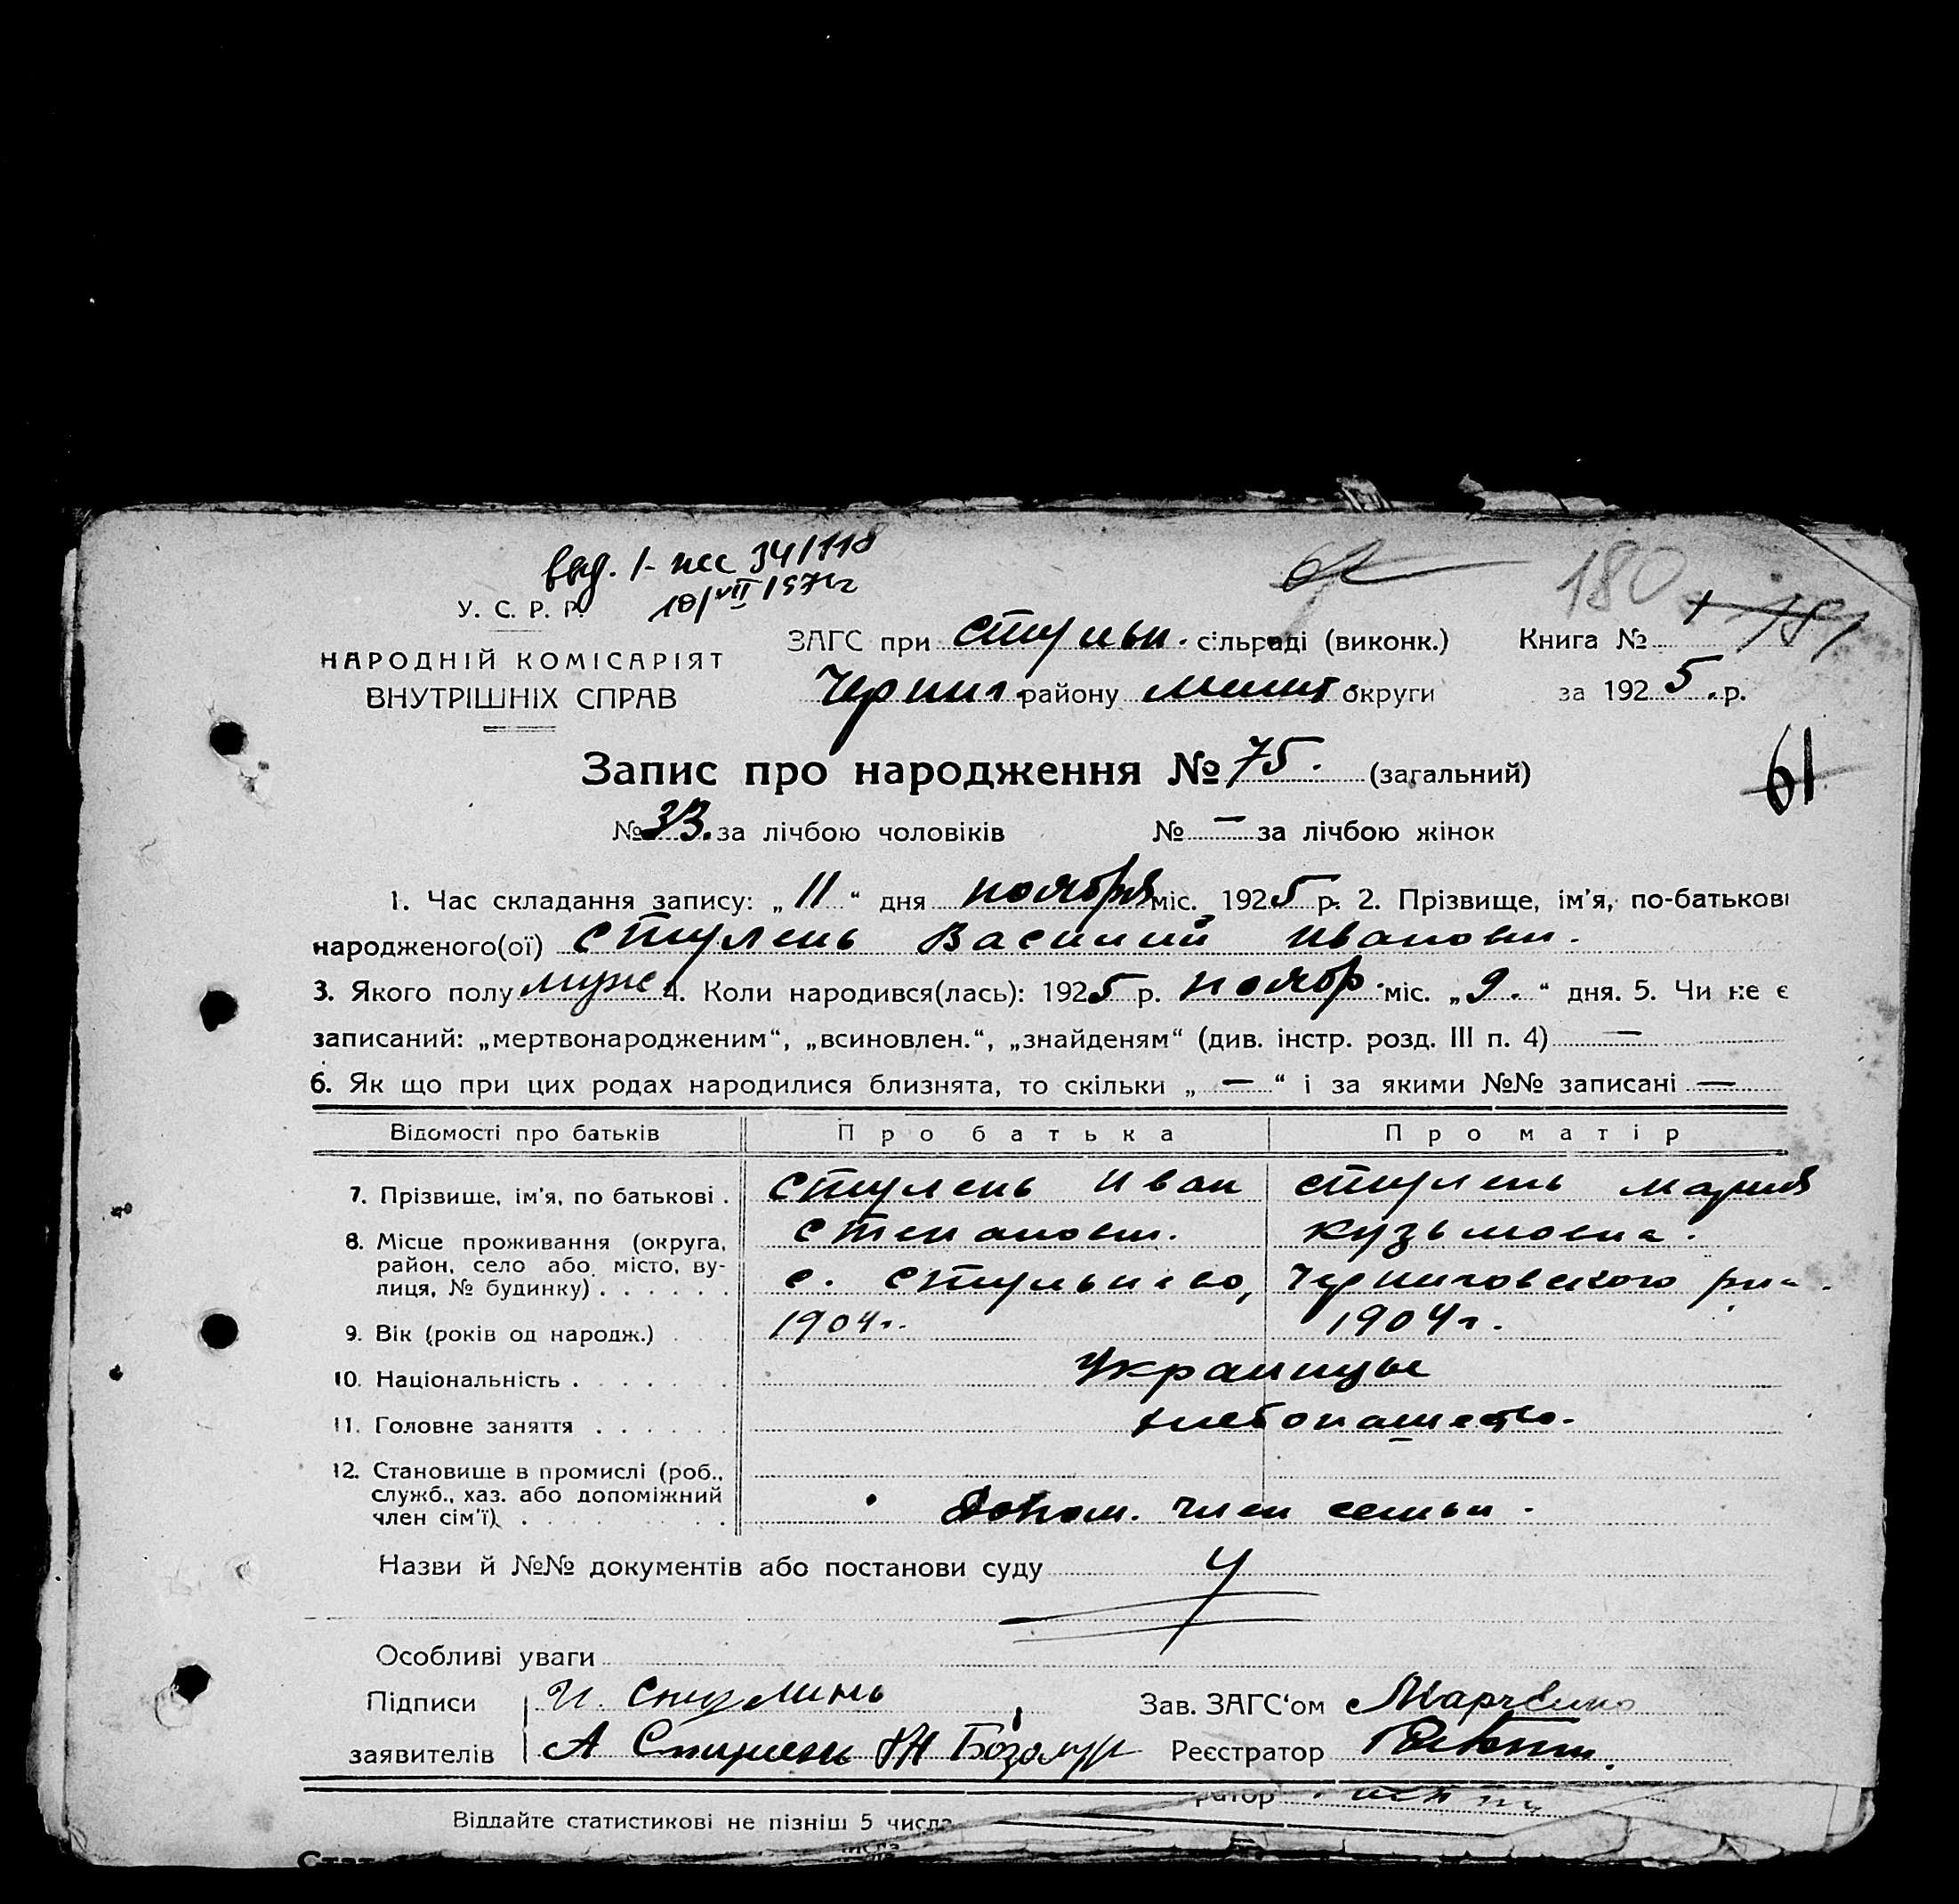 выд. 1- нсс 34/118
10/VII 1957 г
62 180
У. С. Р. Р. 181
ЗАГС при Стульн. сільраді (виконк.) Книга №
НАРОДНІЙ КОМІСАРІЯТ
ВНУТРІШНІХ СПРАВ Черниг. району Мелит. округи за 1925. р.
Запис про народження № 75. (загальний) 61
№ 33. за лічбою чоловіків № — за лічбою жінок
1. Час складання запису: „11“ дня ноября міс. 1925 р. 2. Прізвище, ім'я, по-батькові
народженого(ої) Стулень Василий Иванови.
3. Якого полу муж. 4. Коли народився(лась): 1925 р. ноябр. міс. „9.“ дня. 5. Чи не є
записаний: „мертвонародженим“, „всиновлен.“, „знайденям“ (див. інстр. розд. III п. 4) —
6. Як що при цих родах народилися близнята, то скільки „ — “ і за якими №№ записані —
Відомості про батьків Про батька Про матір
7. Прізвище, ім'я, по батькові . Стулень Иван Стулень Мария
8. Місце проживання (округа, Степанови. Кузьмовна.
район, село або місто, ву-
лиця, № будинку) . . . . . . с. Стульнево, Черниговского
9. Вік (років од народж.) . . . 1904 г. 1904 г.
10. Національність . . . . . . Украинцы
11. Головне заняття . . . . . . хлебопашество.
12. Становище в промислі (роб.,
служб., хаз. або допоміжний
член сім'ї) . . . . . . . допом. член семьи.
Назви й №№ документів або постанови суду
Особливі уваги
Підписи И. Стулинь Зав. ЗАГС'ом
заявителів А Стулень Реєстратор
ратор
Віддайте статистикові не пізніш 5 числа
Стат